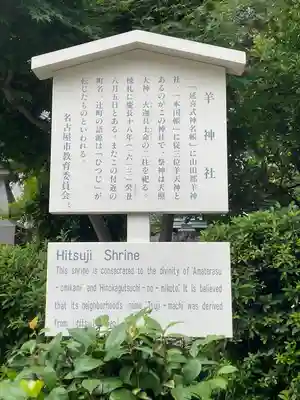 羊神社
『延喜式神名帳』に山田郡羊神
社『本国帳』に従三位羊天神と
あるのがこの神社で、祭神は天照
大神 火迦具土命の二柱を祀る。
棟札に慶長十八年(一六一三)癸丑
八月五日とある。またこの付近の
町名、辻町の語源は「ひつじ」が
転じたものといわれる。
名古屋市教育委員会
Hitsuji Shrine
This shrine is consecrated to the divinity of Amaterasu
-omikami and Hinokagutsuchi-no-mikoto. It is believed
that its neighborhood's name Tsuji-machi was derived
from